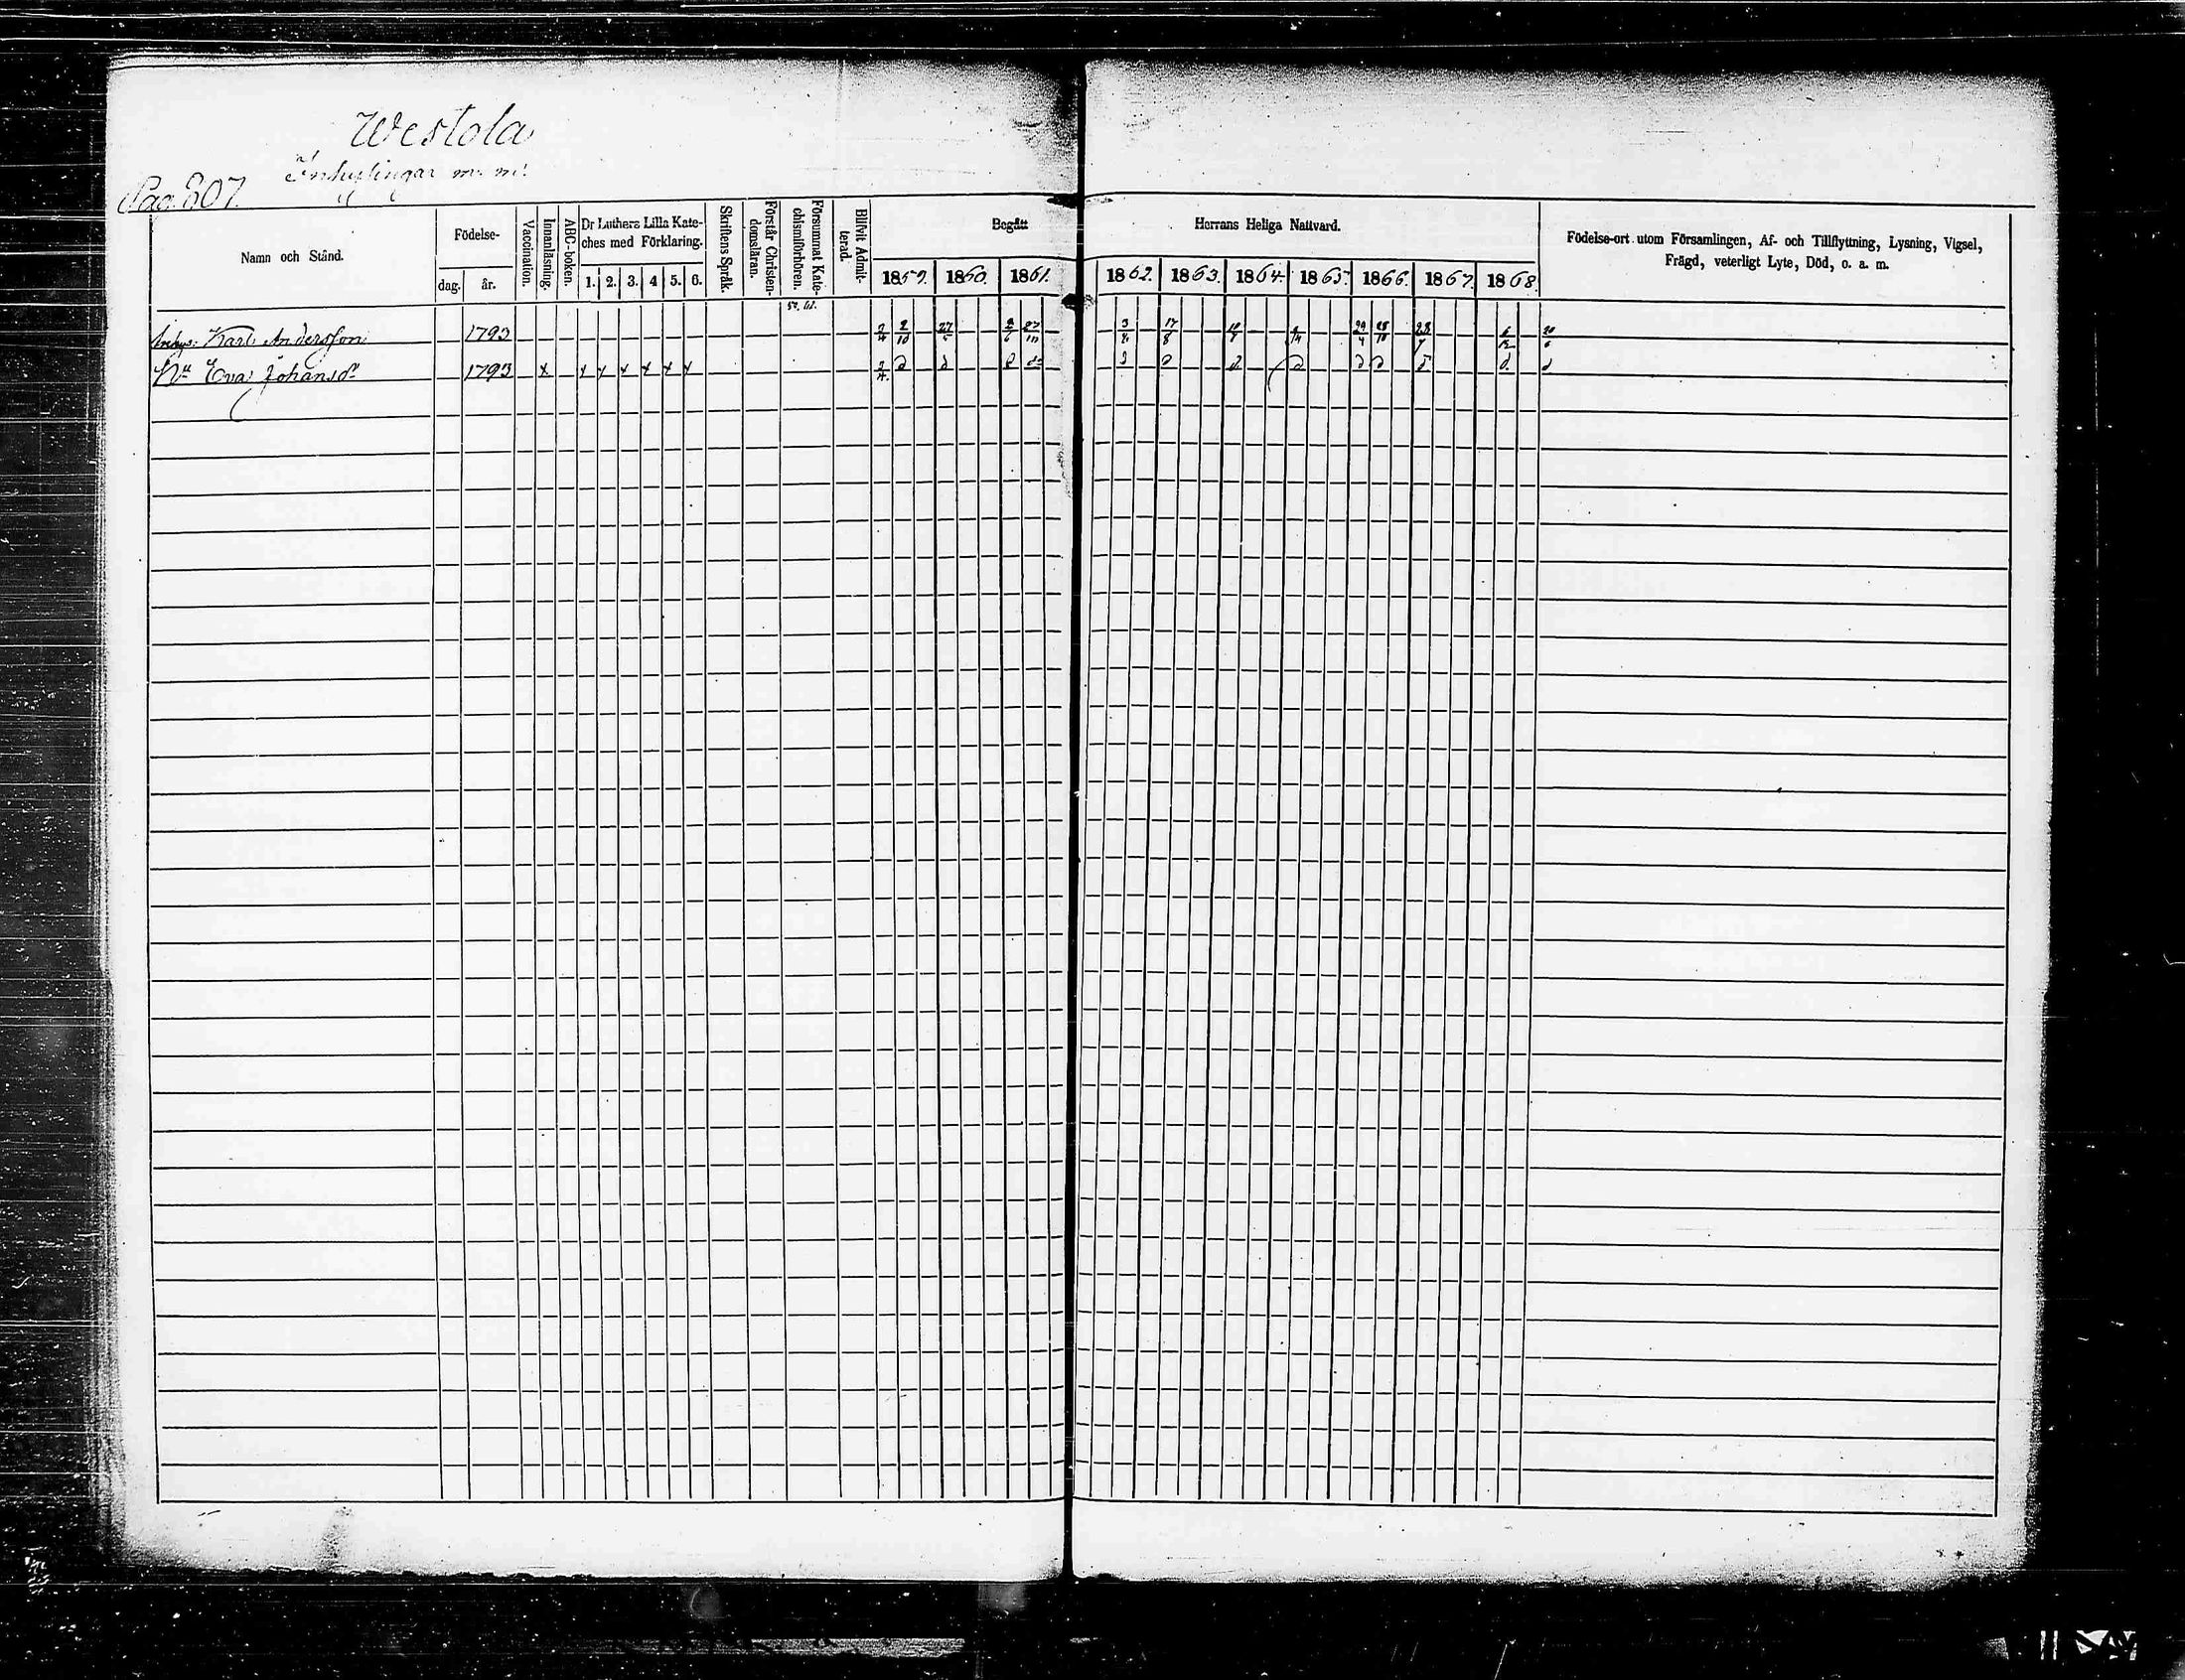 Westola
Inhysingar m. m.
Pag. 807.
Namn och Stånd.
Födelse-
dag. år.
Vaccination.
Innanläsning.
ABC-boken.
Dr Luthers Lilla Kate-
ches med Förklaring.
1. 2. 3. 4 5. 6.
Skriftens Språk.
Förstår Christen-
domsläran.
Försummat Kate-
chismiförhören.
Blifvit Admit-
terad.
Begått Herrans Heliga Nattvard.
1859. 1860. 1861. 1862. 1863. 1864. 1865. 1866. 1867. 1868.
Födelse-ort utom Församlingen, Af- och Tillflyttning, Lysning, Vigsel,
Frägd, veterligt Lyte, Död, o. a. m.
Inhys. Karl Andersson 1793 2/4 2/10 27/5 2/6 27/10 3/8 17/8 10/7 29/4 28/10 28/7
Hu Eva Johansdr 1793 x x x x x x x 2/4 d d d do d d d d d d d d d